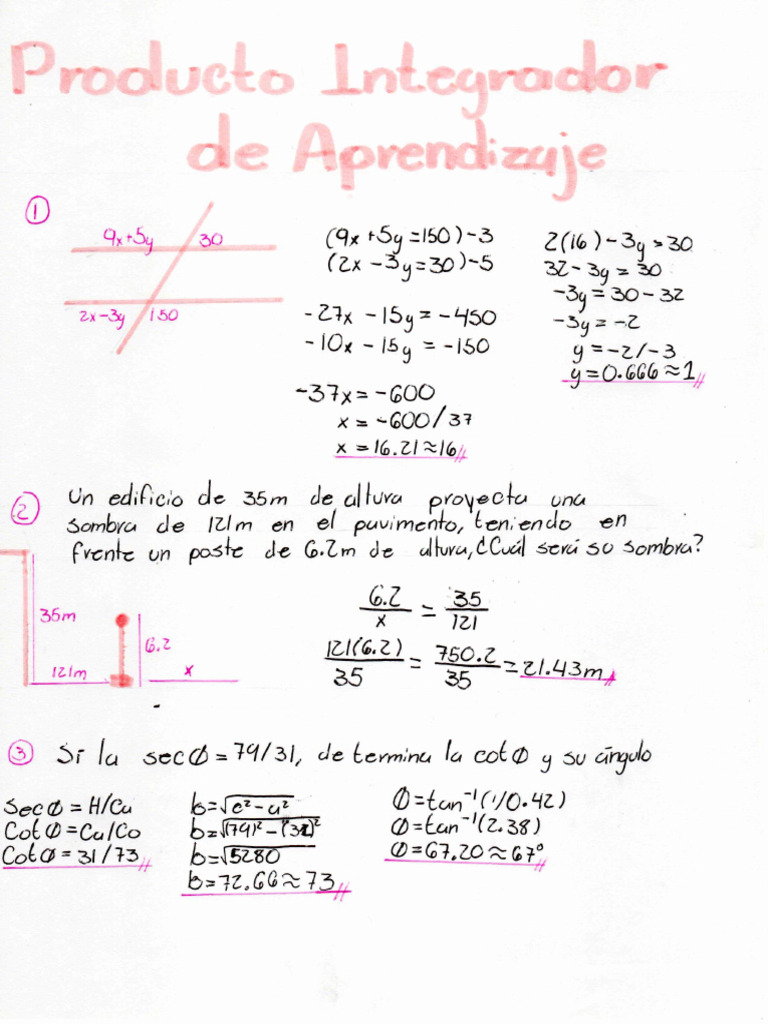 Producto Integrador
de Aprendizaje
1
9x+5y 30
2x-3y 150
(9x+5y=150)-3
(2x-3y=30)-5
-27x-15y=-450
-10x-15y=-150
-37x=-600
x=-600/37
x=16.21≈16
2(16)-3y=30
32-3y=30
-3y=30-32
-3y=-2
y=-2/-3
y=0.666≈1
2
Un edificio de 35m de altura proyecta una
sombra de 121m en el pavimento, teniendo en
frente un poste de 6.2m de altura, ¿Cuál será su sombra?
35m
6.2
121m x
6.2/x = 35/121
121(6.2)/35 = 750.2/35 = 21.43m
3 Si la secØ=79/31, determina la cotØ y su ángulo
SecØ=H/Ca
CotØ=Ca/Co
CotØ=31/73
b=√c²-a²
b=√(79)²-(31)²
b=√5280
b=72.66≈73
Ø=tan⁻¹(1/0.42)
Ø=tan⁻¹(2.38)
Ø=67.20≈67°